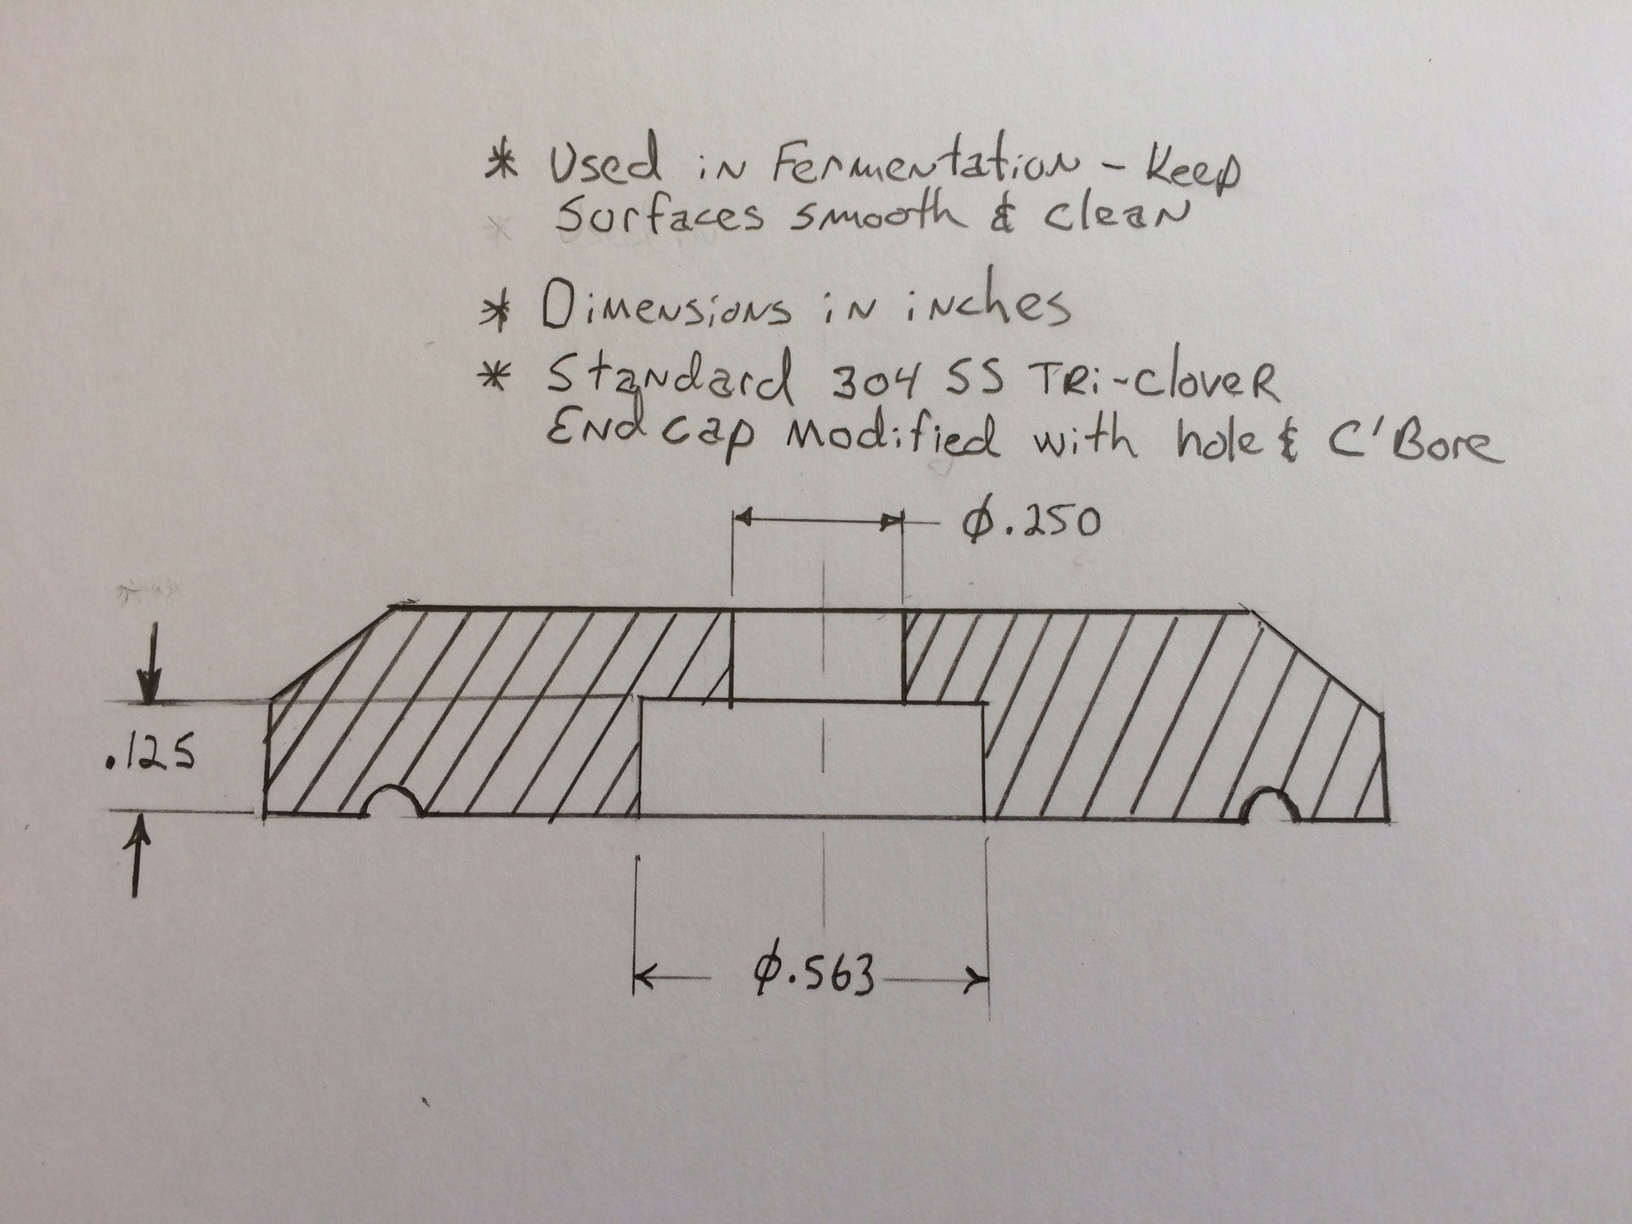 * Used in Fermentation - Keep
Surfaces smooth & clean
* Dimensions in inches
* Standard 304 SS TRi-cloveR
End cap Modified with hole & C'Bore
ϕ.250
.125
ϕ.563